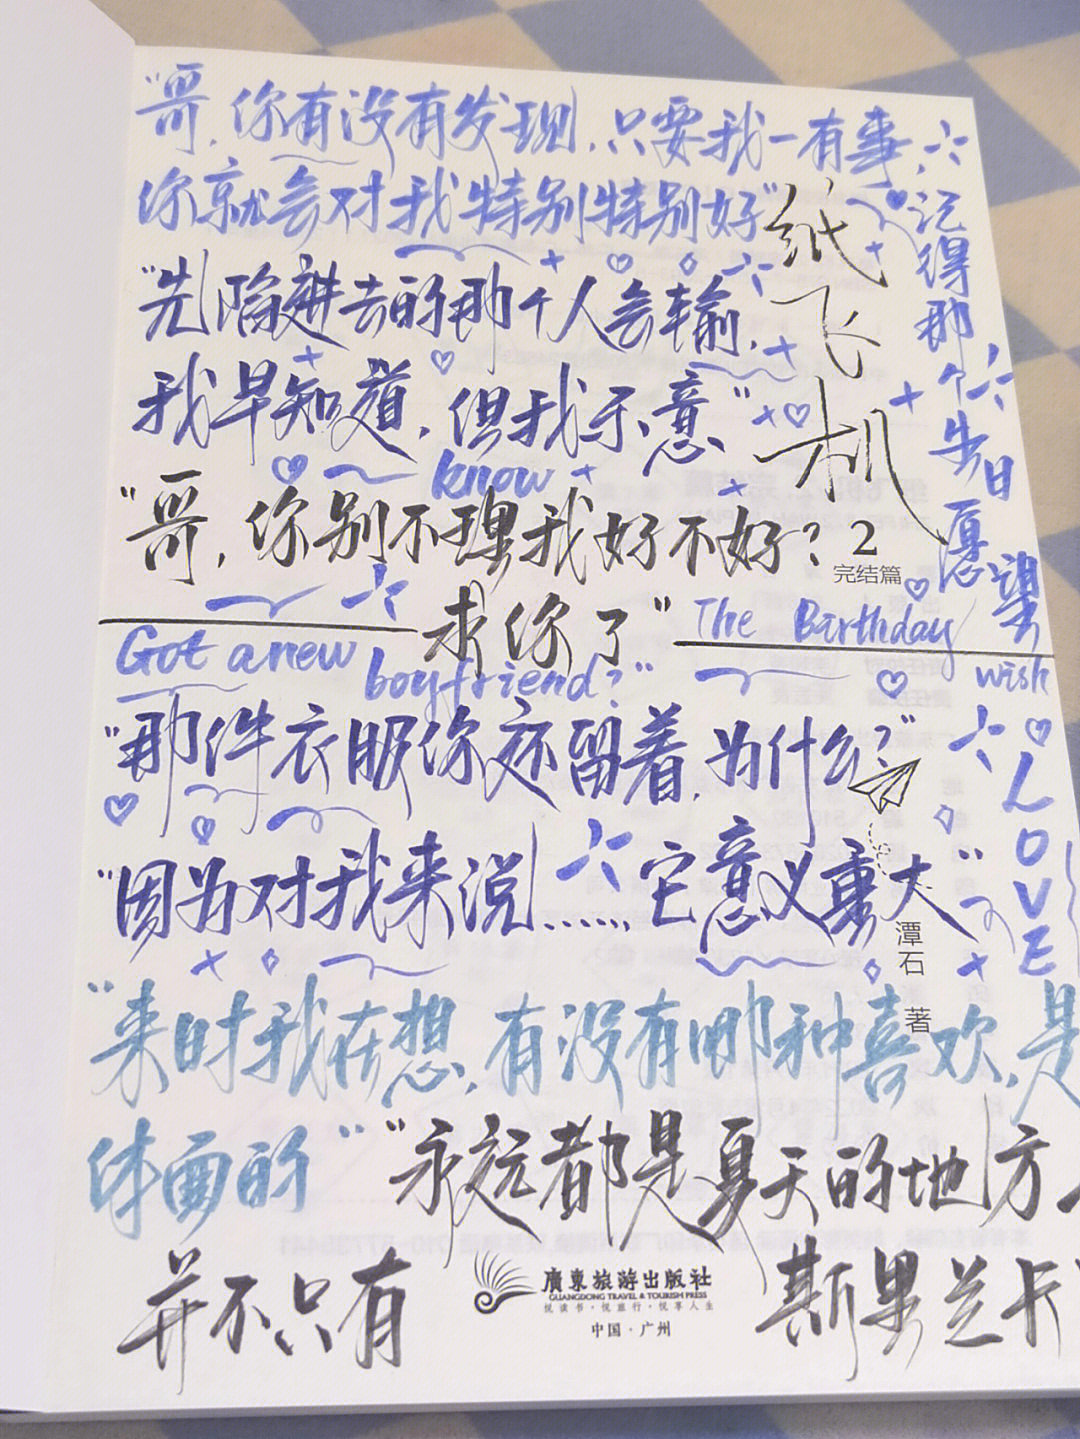 “哥,你有没有发现,只要我一有事,
你就会对我特别特别好”
“先陷进去的那个人会输,
我早知道,但我乐意”
know
“哥,你别不理我好不好?
求你了”
纸飞机
2
完结篇
记得那个生日愿望
The Birthday
wish
Got a new
boyfriend?”
“那件衣服你还留着,为什么?”
“因为对我来说……它意义重大”
LOVE
潭石 著
“来时我在想,有没有哪种喜欢,是
体面的”
“永远都是夏天的地方
并不只有
斯里兰卡
廣東旅游出版社
GUANGDONG TRAVEL & TOURISM PRESS
悦读书·悦旅行·悦享人生
中国·广州